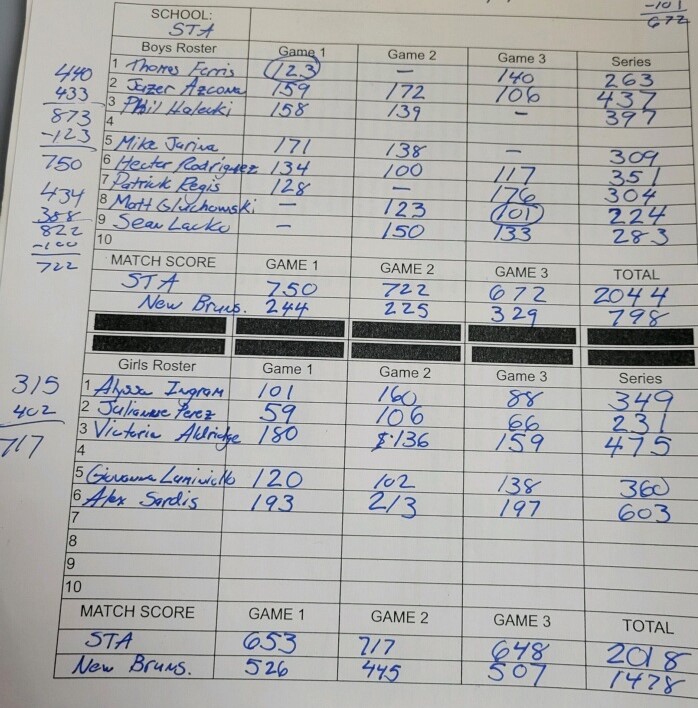 -101
672
SCHOOL:
STA
Boys Roster Game 1 Game 2 Game 3 Series
1 Thomas Ferris 123 — 140 263
2 Jazer Azcona 159 172 106 437
3 Phil Halecki 158 139 - 397
4
5 Mike Jarina 171 138 — 309
6 Hecter Rodriguez 134 100 117 351
7 Patrick Regis 128 — 176 304
8 Matt Gluchowski — 123 101 224
9 Sean Lacko — 150 133 283
10
440
433
873
-123
750
434
388
822
-100
722
MATCH SCORE GAME 1 GAME 2 GAME 3 TOTAL
STA 750 722 672 2044
New Bruns. 244 225 329 798
Girls Roster Game 1 Game 2 Game 3 Series
1 Alyssa Ingram 101 160 88 349
2 Julianne Perez 59 106 66 231
3 Victoria Aldridge 180 136 159 475
4
5 Giovanna 120 102 138 360
6 Alex Sardis 193 213 197 603
7
8
9
10
315
402
717
MATCH SCORE GAME 1 GAME 2 GAME 3 TOTAL
STA 653 717 648 2018
New Bruns. 526 445 507 1478